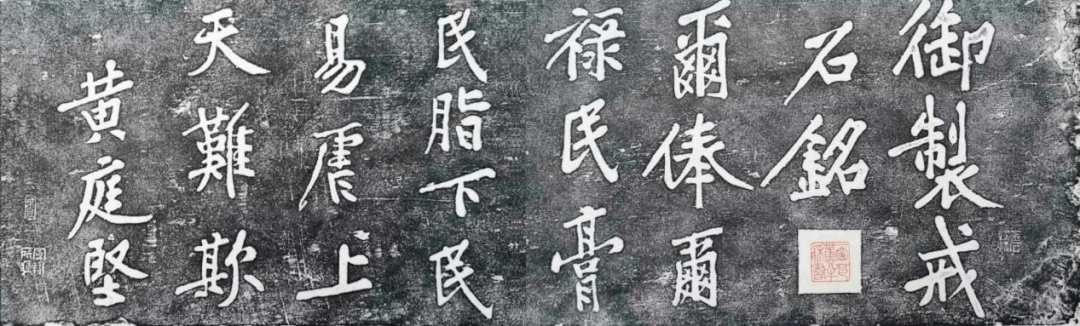 御製戒
石銘
爾俸爾
祿民膏
民脂下民
易虐上
天難欺
黄庭堅